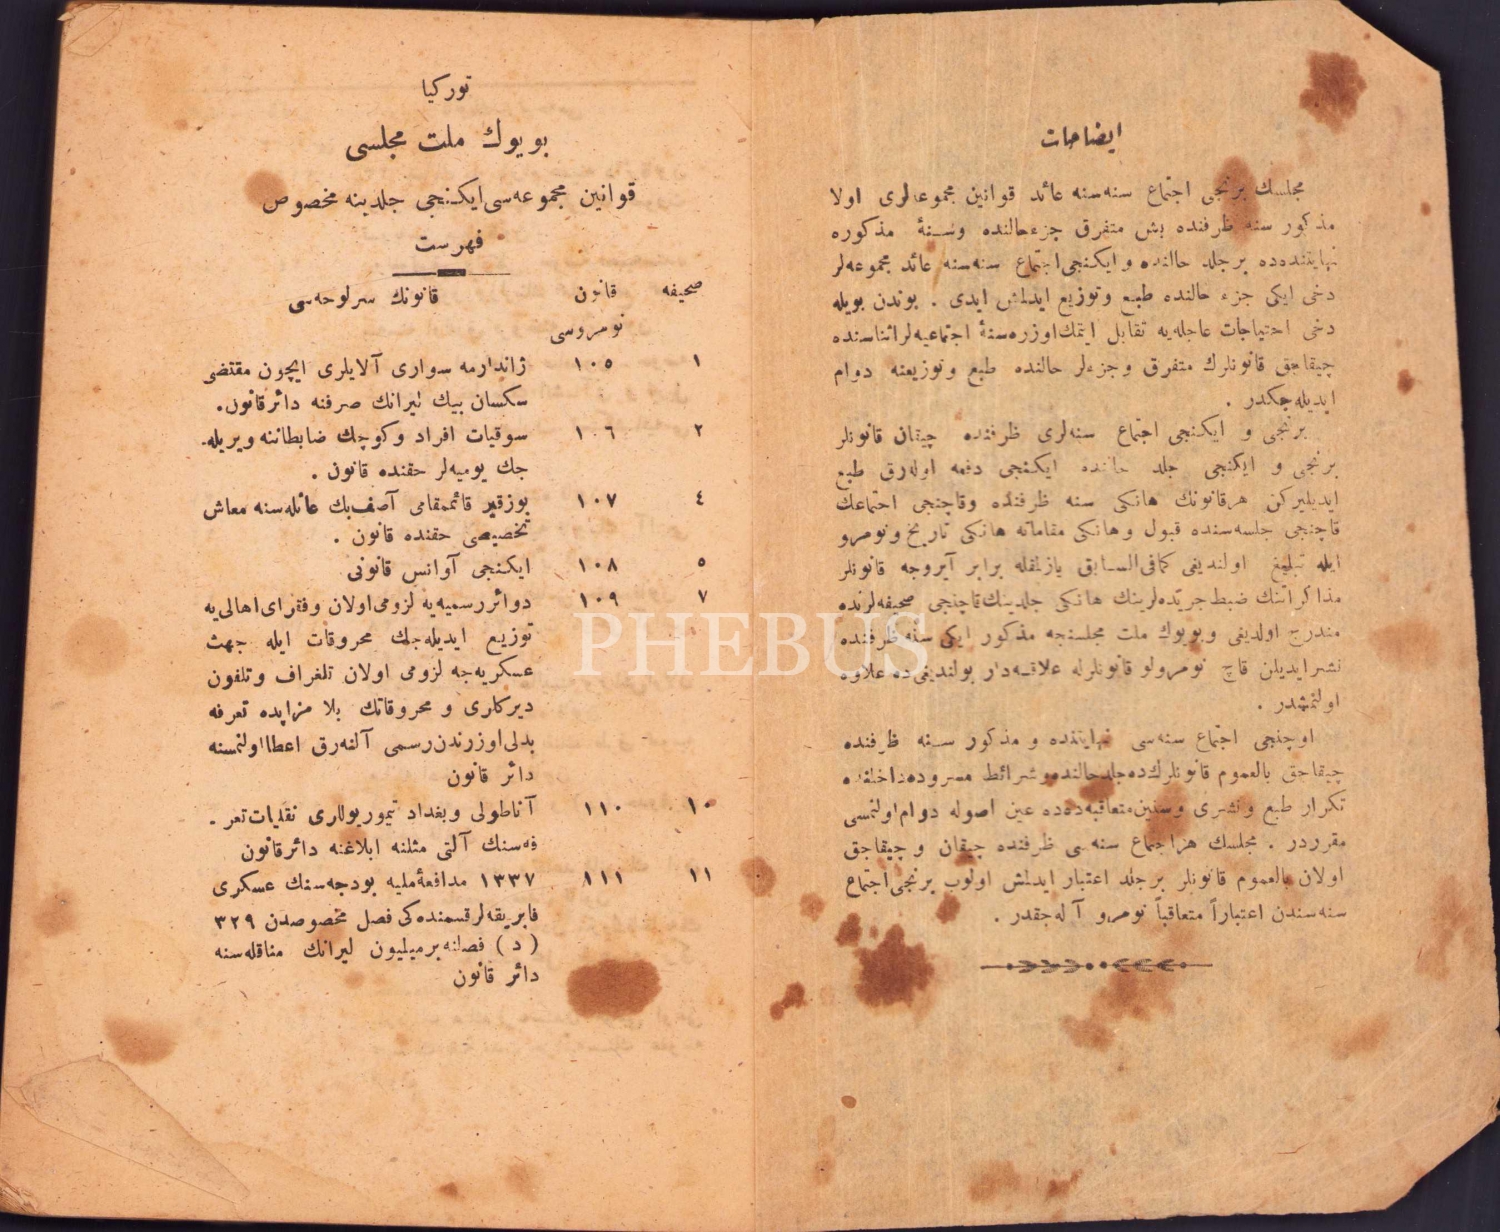 ایضاحات
مجلسك برنجی اجتماع سنه‌سنه عائد قوانین مجموعه‌لری اولا
مذكور سنه ظرفنده بش متفرق جزء حالنده وسنهٔ مذكوره
نهایتنده‌ده برجلد حالنده و ایكنجی اجتماع سنه‌سنه عائد مجموعه‌لر
دخی ایكی جزء حالنده طبع وتوزیع ایدلمش ایدی . بوندن بویله
دخی احتیاجات عاجله‌یه تقابل ایتمك اوزره سنهٔ اجتماعیه‌لر اثناسنده
چیقاجق قانونلرك متفرق وجزءلر حالنده طبع وتوزیعنه دوام
ایدیله‌جكدر .
برنجی و ایكنجی اجتماع سنه‌لری ظرفنده چیقان قانونلر
برنجی و ایكنجی جلد حالنده ایكنجی دفعه اوله‌رق طبع
ایدیلیركن هرقانونك هانكی سنه ظرفنده وقاچنجی اجتماعك
قاچنجی جلسه‌سنده قبول وهانكی مقاماته هانكی تاریخ ونومرو
ایله تبلیغ اولندیغی كمافی‌السابق یازلمقله برابر آیروجه قانونلر
مذاكراتنك ضبط جریده‌لرینك هانكی جلدینك قاچنجی صحیفه‌لرنده
مندرج اولدیغی وبویوك ملت مجلسنجه مذكور ایكی سنه ظرفنده
نشرایدیلن قاچ نومرولو قانونلرله علاقه‌دار بولندیغی‌ده علاوه
اولنمشدر .
اوچنجی اجتماع سنه‌سی نهایتنده و مذكور سنه ظرفنده
چیقاجق بالعموم قانونلرك‌ده جلد حالنده وشرائط مسروده داخلنده
تكرار طبع ونشری وسنین متعاقبه‌ده‌ده عین اصوله دوام اولنمسی
مقرردر . مجلسك هراجتماع سنه‌سی ظرفنده چیقان و چیقاجق
اولان بالعموم قانونلر برجلد اعتبار ایدلمش اولوب برنجی اجتماع
سنه‌سندن اعتباراً متعاقباً نومرو آله‌جقدر .
توركیا
بویوك ملت مجلسی
قوانین مجموعه‌سی ایكنجی جلدینه مخصوص
فهرست
صحیفه قانون قانونك سرلوحه‌سی
نومروسی
۱ ۱۰۵ ژاندارمه سواری آلایلری ایچون مقتضی
سكسان بیك لیرانك صرفنه دائرقانون.
۲ ۱۰٦ سوقیات افراد وكوچك ضابطاننه ویریله-
جك یومیه‌لر حقنده قانون .
٤ ۱۰۷ بوزقیر قائممقامی آصف‌بك عائله‌سنه معاش
تخصیصی حقنده قانون .
٥ ۱۰۸ ایكنجی آوانس قانونی
۷ ۱۰۹ دوائررسمیه‌یه لزومی اولان وفقرای اهالی‌یه
توزیع ایدیله‌جك محروقات ایله جهت
عسكریه‌جه لزومی اولان تلغراف وتلفون
دیركلری و محروقاتك بلا مزایده تعرفه
بدلی اوزرندن رسمی آلنه‌رق اعطا اولنمسنه
دائر قانون
۱۰ ۱۱۰ آناطولی وبغداد تیموریوللری نقلیات تعر-
فه‌سنك آلتی مثلنه ابلاغنه دائرقانون
۱۱ ۱۱۱ ۱۳۳۷ مدافعهٔ ملیه بودجه‌سنك عسكری
فابریقه‌لر قسمنده‌كی فصل مخصوصدن ۳۲۹
( د ) فصلنه برمیلیون لیرانك مناقله‌سنه
دائر قانون
PHEBUS